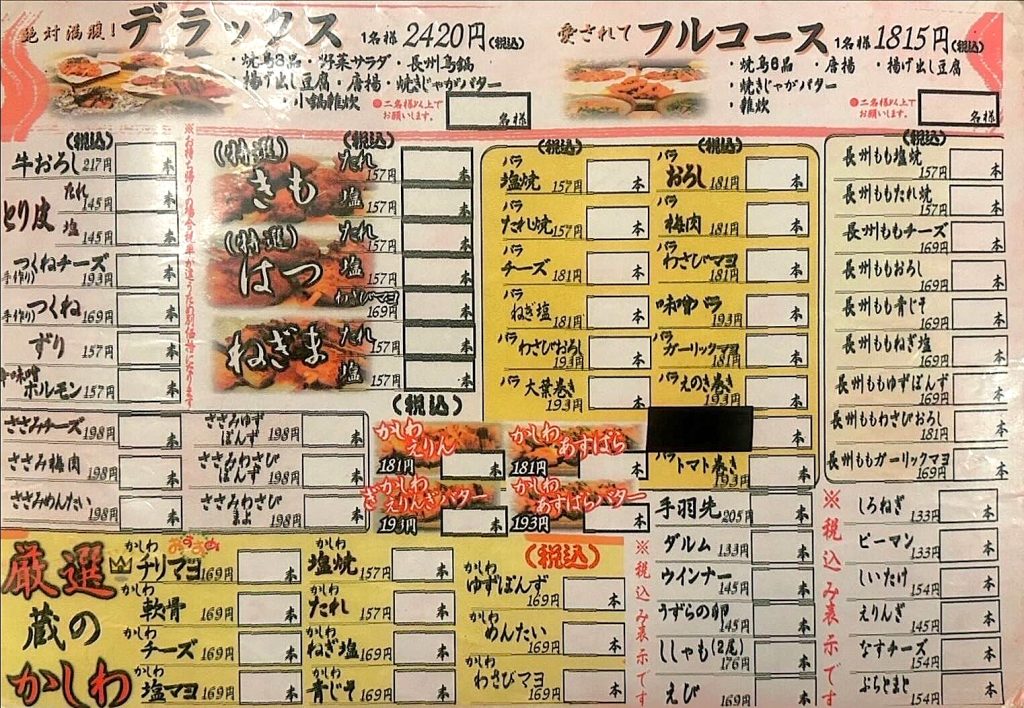 絶対満腹!デラックス 1名様2420円(税込)
・焼鳥8品・野菜サラダ・長州鳥鍋
・揚げ出し豆腐・唐揚・焼きじゃがバター
・小鍋雑炊
●二名様以上で
お願いします。
名様
愛されてフルコース 1名様1815円(税込)
・焼鳥6品・唐揚・揚げ出し豆腐
・焼きじゃがバター
・雑炊
●二名様以上で
お願いします。
名様
(税込)
牛おろし 217円 本
とり皮
たれ 145円 本
塩 145円 本
手作り)つくねチーズ 193円 本
手作り)つくね 169円 本
ずり 157円 本
味噌
ホルモン 157円 本
※お持ち帰りの場合税率が違うため別価格になります
(税込)
(特選)きも
たれ 157円 本
塩 157円 本
(特選)はつ
たれ 157円 本
塩 157円 本
わさびマヨ 169円 本
ねぎま
たれ 157円 本
塩 157円 本
(税込)
ささみチーズ 198円 本
ささみ梅肉 198円 本
ささみめんたい 198円 本
ささみゆず
ぽんず 198円 本
ささみわさび
ぽんず 198円 本
ささみわさび
まよ 198円 本
かしわ
えりん
181円 本
かしわ
あすぱら
181円 本
かしわ
えりんぎバター
193円 本
かしわ
あすぱらバター
193円 本
(税込)
バラ
塩焼 157円 本
バラ
たれ焼 157円 本
バラ
チーズ 181円 本
バラ
ねぎ塩 181円 本
バラ
わさびおろし 193円 本
バラ
大葉巻き 193円 本
(税込)
バラ
おろし 181円 本
バラ
梅肉 181円 本
バラ
わさびマヨ 181円 本
味噌バラ 193円 本
バラ
ガーリックマヨ 181円 本
バラ
えのき巻き 193円 本
本
バラ
トマト巻き 193円 本
(税込)
長州もも塩焼 157円 本
長州ももたれ焼 157円 本
長州ももチーズ 169円 本
長州ももおろし 169円 本
長州もも青じそ 169円 本
長州ももねぎ塩 169円 本
長州ももゆずぽんず 169円 本
長州ももわさびおろし 181円 本
長州ももガーリックマヨ 169円 本
厳選
蔵の
かしわ
おすすめ
かしわ
チリマヨ 169円 本
かしわ
軟骨 169円 本
かしわ
チーズ 169円 本
かしわ
塩マヨ 169円 本
かしわ
塩焼 157円 本
かしわ
たれ 157円 本
かしわ
ねぎ塩 169円 本
かしわ
青じそ 169円 本
(税込)
かしわ
ゆずぽんず 169円 本
かしわ
めんたい 169円 本
かしわ
わさびマヨ 169円 本
※税込み表示です
手羽先 205円 本
ダルム 133円 本
ウインナー 145円 本
うずらの卵 145円 本
ししゃも(2尾) 176円 本
えび 169円 本
※税込み表示です
しろねぎ 133円 本
ピーマン 133円 本
しいたけ 154円 本
えりんぎ 154円 本
なすチーズ 154円 本
ぷちとまと 154円 本